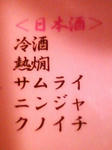 ＜日本酒＞
冷酒
熱燗
サムライ
ニンジャ
クノイチ